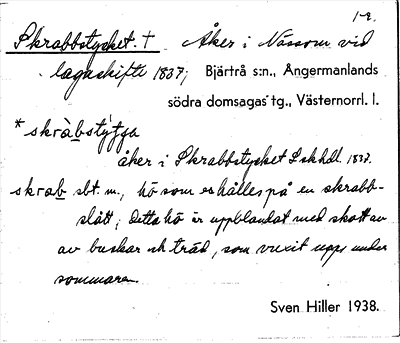 1-2.
Skrabbstycket. † Åker i Nässom vid
lagaskifte 1837; Bjärtrå s:n., Ångermanlands
södra domsagas tg., Västernorrl. l.
*skràbstýgga
åker i Skrabbstycket Lskhdl. 1837.
skrab sbt. m., hö som erhålles på en skrabb-
slått; Detta hö är uppblandat med skott av
av buskar och träd, som vuxit upp under
sommaren.
Sven Hiller 1938.